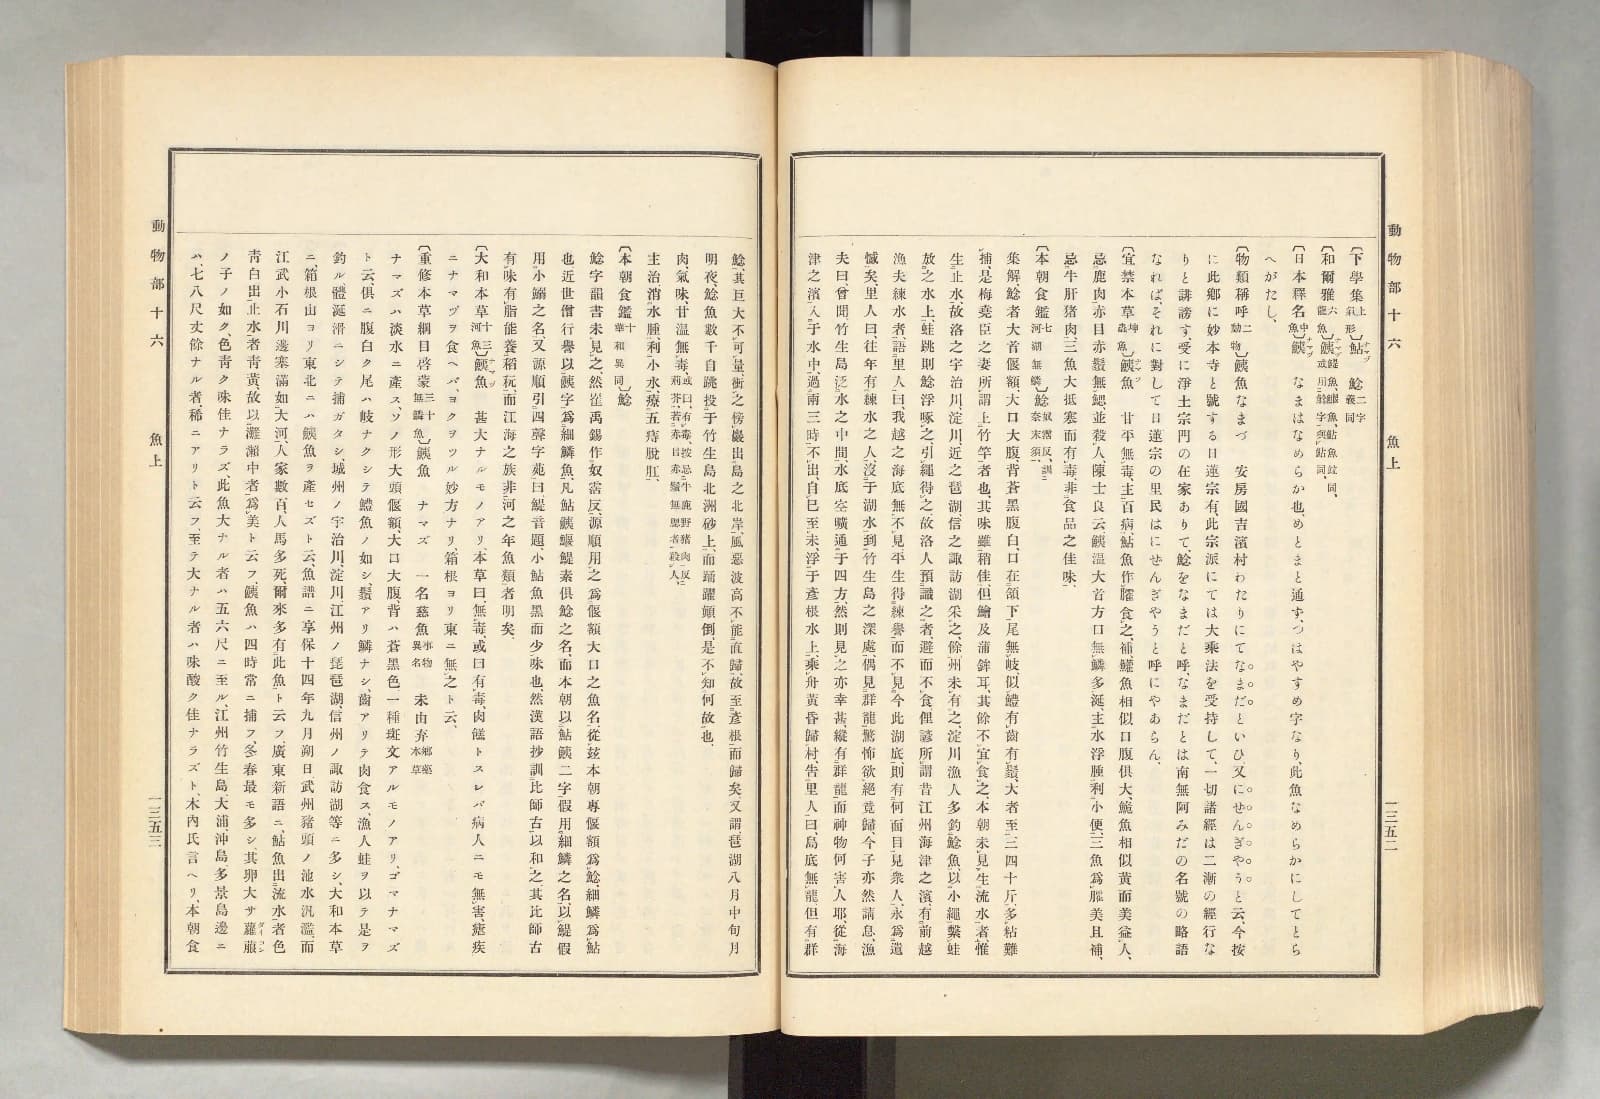 動物部十六　魚上　一三五二
〔下學集上氣形〕鮎ナマヅ　鯰二字義同
〔和爾雅六龍魚〕鮧ナマヅ鯷魚、鰋魚、鮎魚竝同、或用鯰字與鮎同、
〔日本釋名中魚〕鮧ナマヅ　なまはなめらか也、めとまと通ず、つはやすめ字なり、此魚なめらかにしてとら
へがたし、
〔物類稱呼二動物〕鮧魚なまづ　安房國吉濱村わたりにてなまだといひ、又にせんぎやうと云、今按
に此鄕に妙本寺と號する日蓮宗有、此宗派にては大乘法を受持して、一切諸經は二漸の經行な
りと誹謗す、爰に淨土宗門の在家ありて、鯰をなまだと呼、なまだとは南無阿みだの名號の略語
なれば、それに對して日蓮宗の里民はにせんぎやうと呼にやあらん、
〔宜禁本草坤蟲魚〕鮧魚ナマヅ　甘平無毒、主百病、鮎魚作臛食之補、鱯魚相似口腹俱大、鮠魚相似黃而美益人、
忌鹿肉、赤目赤鬚無鰓並殺人、陳士良云、鮧溫大首方口無鱗多涎、主水浮腫利小便、三魚爲臛美且補、
忌牛肝猪肉、三魚大抵塞而有毒非食品之佳味、
〔本朝食鑑七河湖無鱗〕鯰奴霑反、訓奈末須、
集解、鯰者大首偃額、大口大腹、背蒼黑腹白、口在頷下、尾無岐似鱧有齒有鬚、大者至三四十斤、多粘難
捕、是梅堯臣之妻所謂上竹竿者也、其味雖稍佳、但鱠及蒲鉾耳、其餘不宜食之、本朝未見生流水者、惟
生止水、故洛之宇治川、淀川、近之琶湖、信之諏訪湖采之、餘州未有之、淀川漁人多釣鯰魚、以小繩繫蛙
放之水上、蛙跳則鯰浮啄之、引繩得之、故洛人預識之者、避而不食、俚諺所謂昔江州海津之濱有前越
漁夫練水者、語里人曰、我越之海底無不見、平生得練譽、而不見今此湖底、則有何面目見衆人、永爲遺
憾矣、里人曰、往年有練水之人、沒于湖水、到竹生島之深處、偶見群龍、驚怖欲絕竟歸、今子亦然請息、漁
夫曰、曾聞竹生島泛水之中間、水底空曠通于四方、然則見之亦幸甚、縱有群龍而神物何害人耶、從海
津之濱入于水中、過兩三時不出、自巳至未、浮于彥根水上、乘舟黃昏歸村、吿里人曰、島底無龍、但有群
鯰、其巨大不可量、衝之傍巖出島之北岸、風惡波高不能直歸、故至彥根而歸矣、又謂琶湖八月中旬月
明夜、鯰魚數千自跳投于竹生島北洲砂上、而踊躍顚倒、是不知何故也、
肉、氣味、甘溫無毒、或曰、有毒、按忌牛鹿野猪肉、反荊芥、若赤目赤鬚無鰓者殺人、
主治、消水腫、利小水、療五痔脫肛、
〔本朝食鑑十華和異同〕鯰
鯰字韻書未見之、然崔禹錫作奴霑反、源順用之爲偃額大口之魚名、從玆本朝專偃額爲鯰、細鱗爲鮎
也、近世僧行譽以鮧字爲細鱗魚、凡鮎鮧鰋鯷素俱鯰之名、而本朝以鮎鮧二字假用細鱗之名、以鯷假
用小鰯之名、又源順引四聲字苑曰、鯷音題、小鮎魚黑而少味也、然漢語抄訓比師古、以和之其比師古
有味有脂能養稻玩、而江海之族、非河之年魚類者明矣、
〔大和本草十三河魚〕鮧魚ナマヅ　甚大ナルモノアリ、本草曰、無毒、或曰有毒、肉餻トスレバ病人ニモ無害、瘧疾
ニナマヅヲ食ヘバ、ヨクヲツル妙方ナリ、箱根ヨリ東ニ無之ト云、
〔重修本草綱目啓蒙三十無鱗魚〕鮧魚　ナマズ　一名慈魚事物異名　未由弃鄕藥本草
ナマズハ淡水ニ產ス、ソノ形大頭偃額、大口大腹、背ハ蒼黑色、一種斑文アルモノアリ、ゴマナマズ
ト云、俱ニ腹白ク尾ハ岐ナクシテ鱧魚ノ如シ、鬚アリ鱗ナシ、齒アリテ肉食ス、漁人蛙ヲ以テ是ヲ
釣ル、體涎滑ニシテ捕ガタシ、城州ノ宇治川、淀川、江州ノ琵琶湖、信州ノ諏訪湖等ニ多シ、大和本草
ニ、箱根山ヨリ東北ニハ鮧魚ヲ產セズト云、魚譜ニ享保十四年九月朔日、武州豬頭ノ池水汎濫、而
江武小石川邊塞滿如大河、人家數百、人馬多死、爾來多有此魚ト云フ、廣東新語ニ、鮎魚出流水者色
靑白、出止水者靑黃、故以灘瀨中者爲美ト云フ、鮧魚ハ四時常ニ捕フ、冬春最モ多シ、其卵大サ蘿菔ダイコン
ノ子ノ如ク、色靑ク味佳ナラズ、此魚大ナル者ハ五六尺ニ至ル、江州竹生島、大浦沖島、多景島邊ニ
ハ、七八尺丈餘ナル者、稀ニアリト云フ、至テ大ナル者ハ味酸ク佳ナラズト、木內氏言ヘリ、本朝食
動物部十六　魚上　一三五三